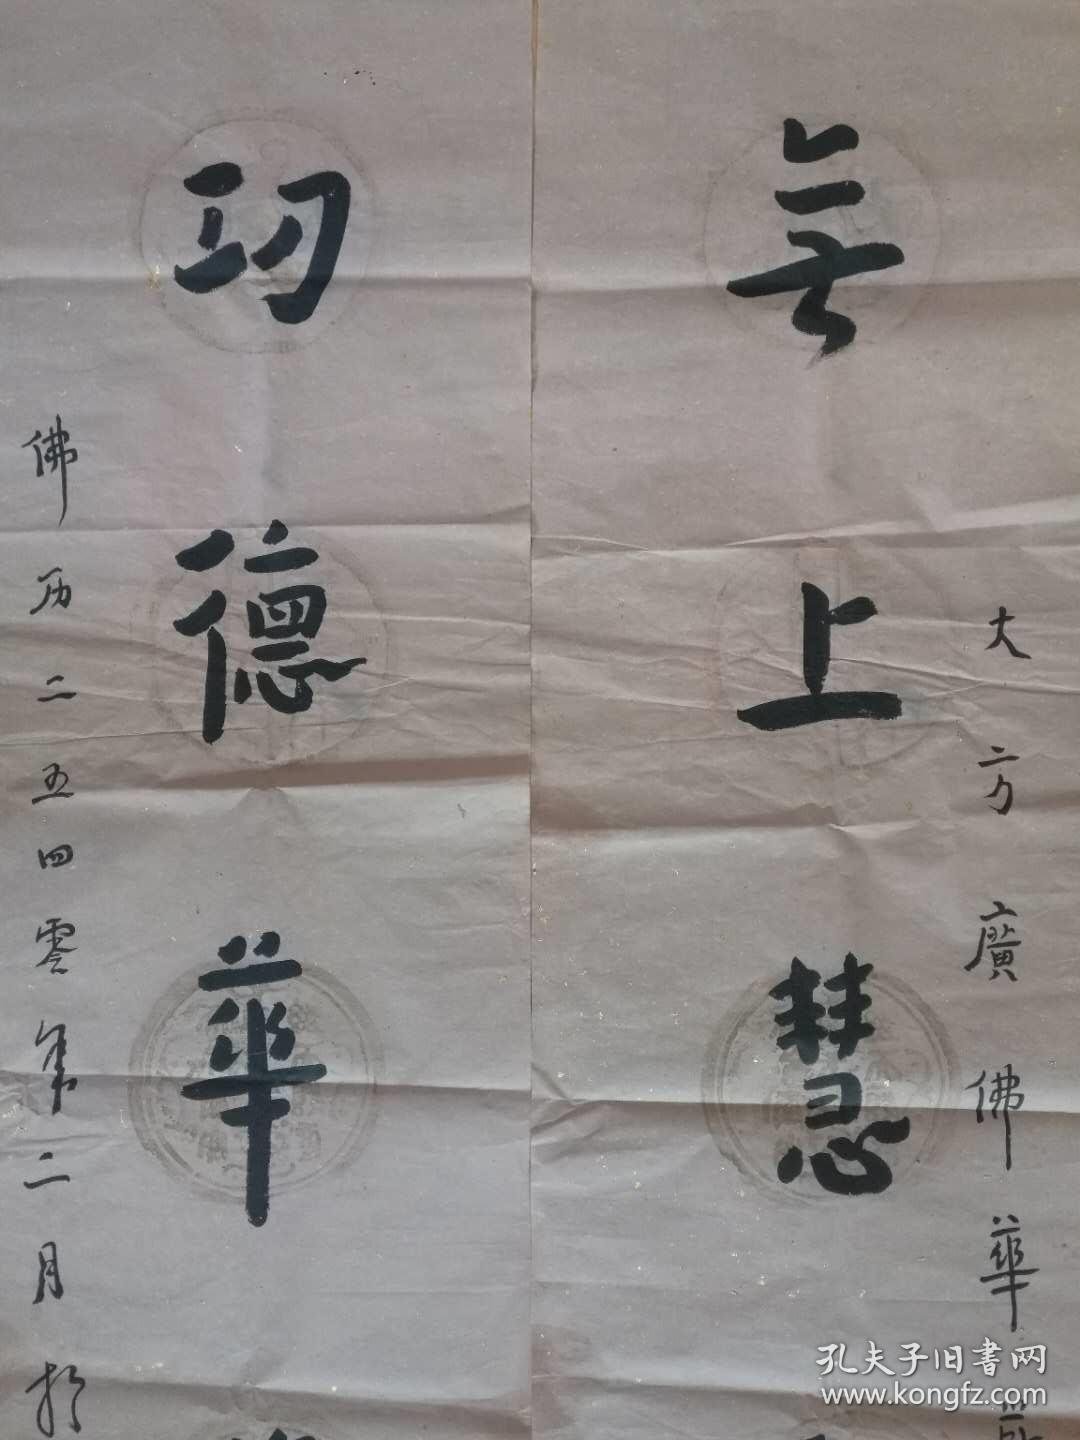 大方廣佛華
無上慧
功德華
佛历二五四零年二月於
孔夫子旧書网
www.kongfz.com